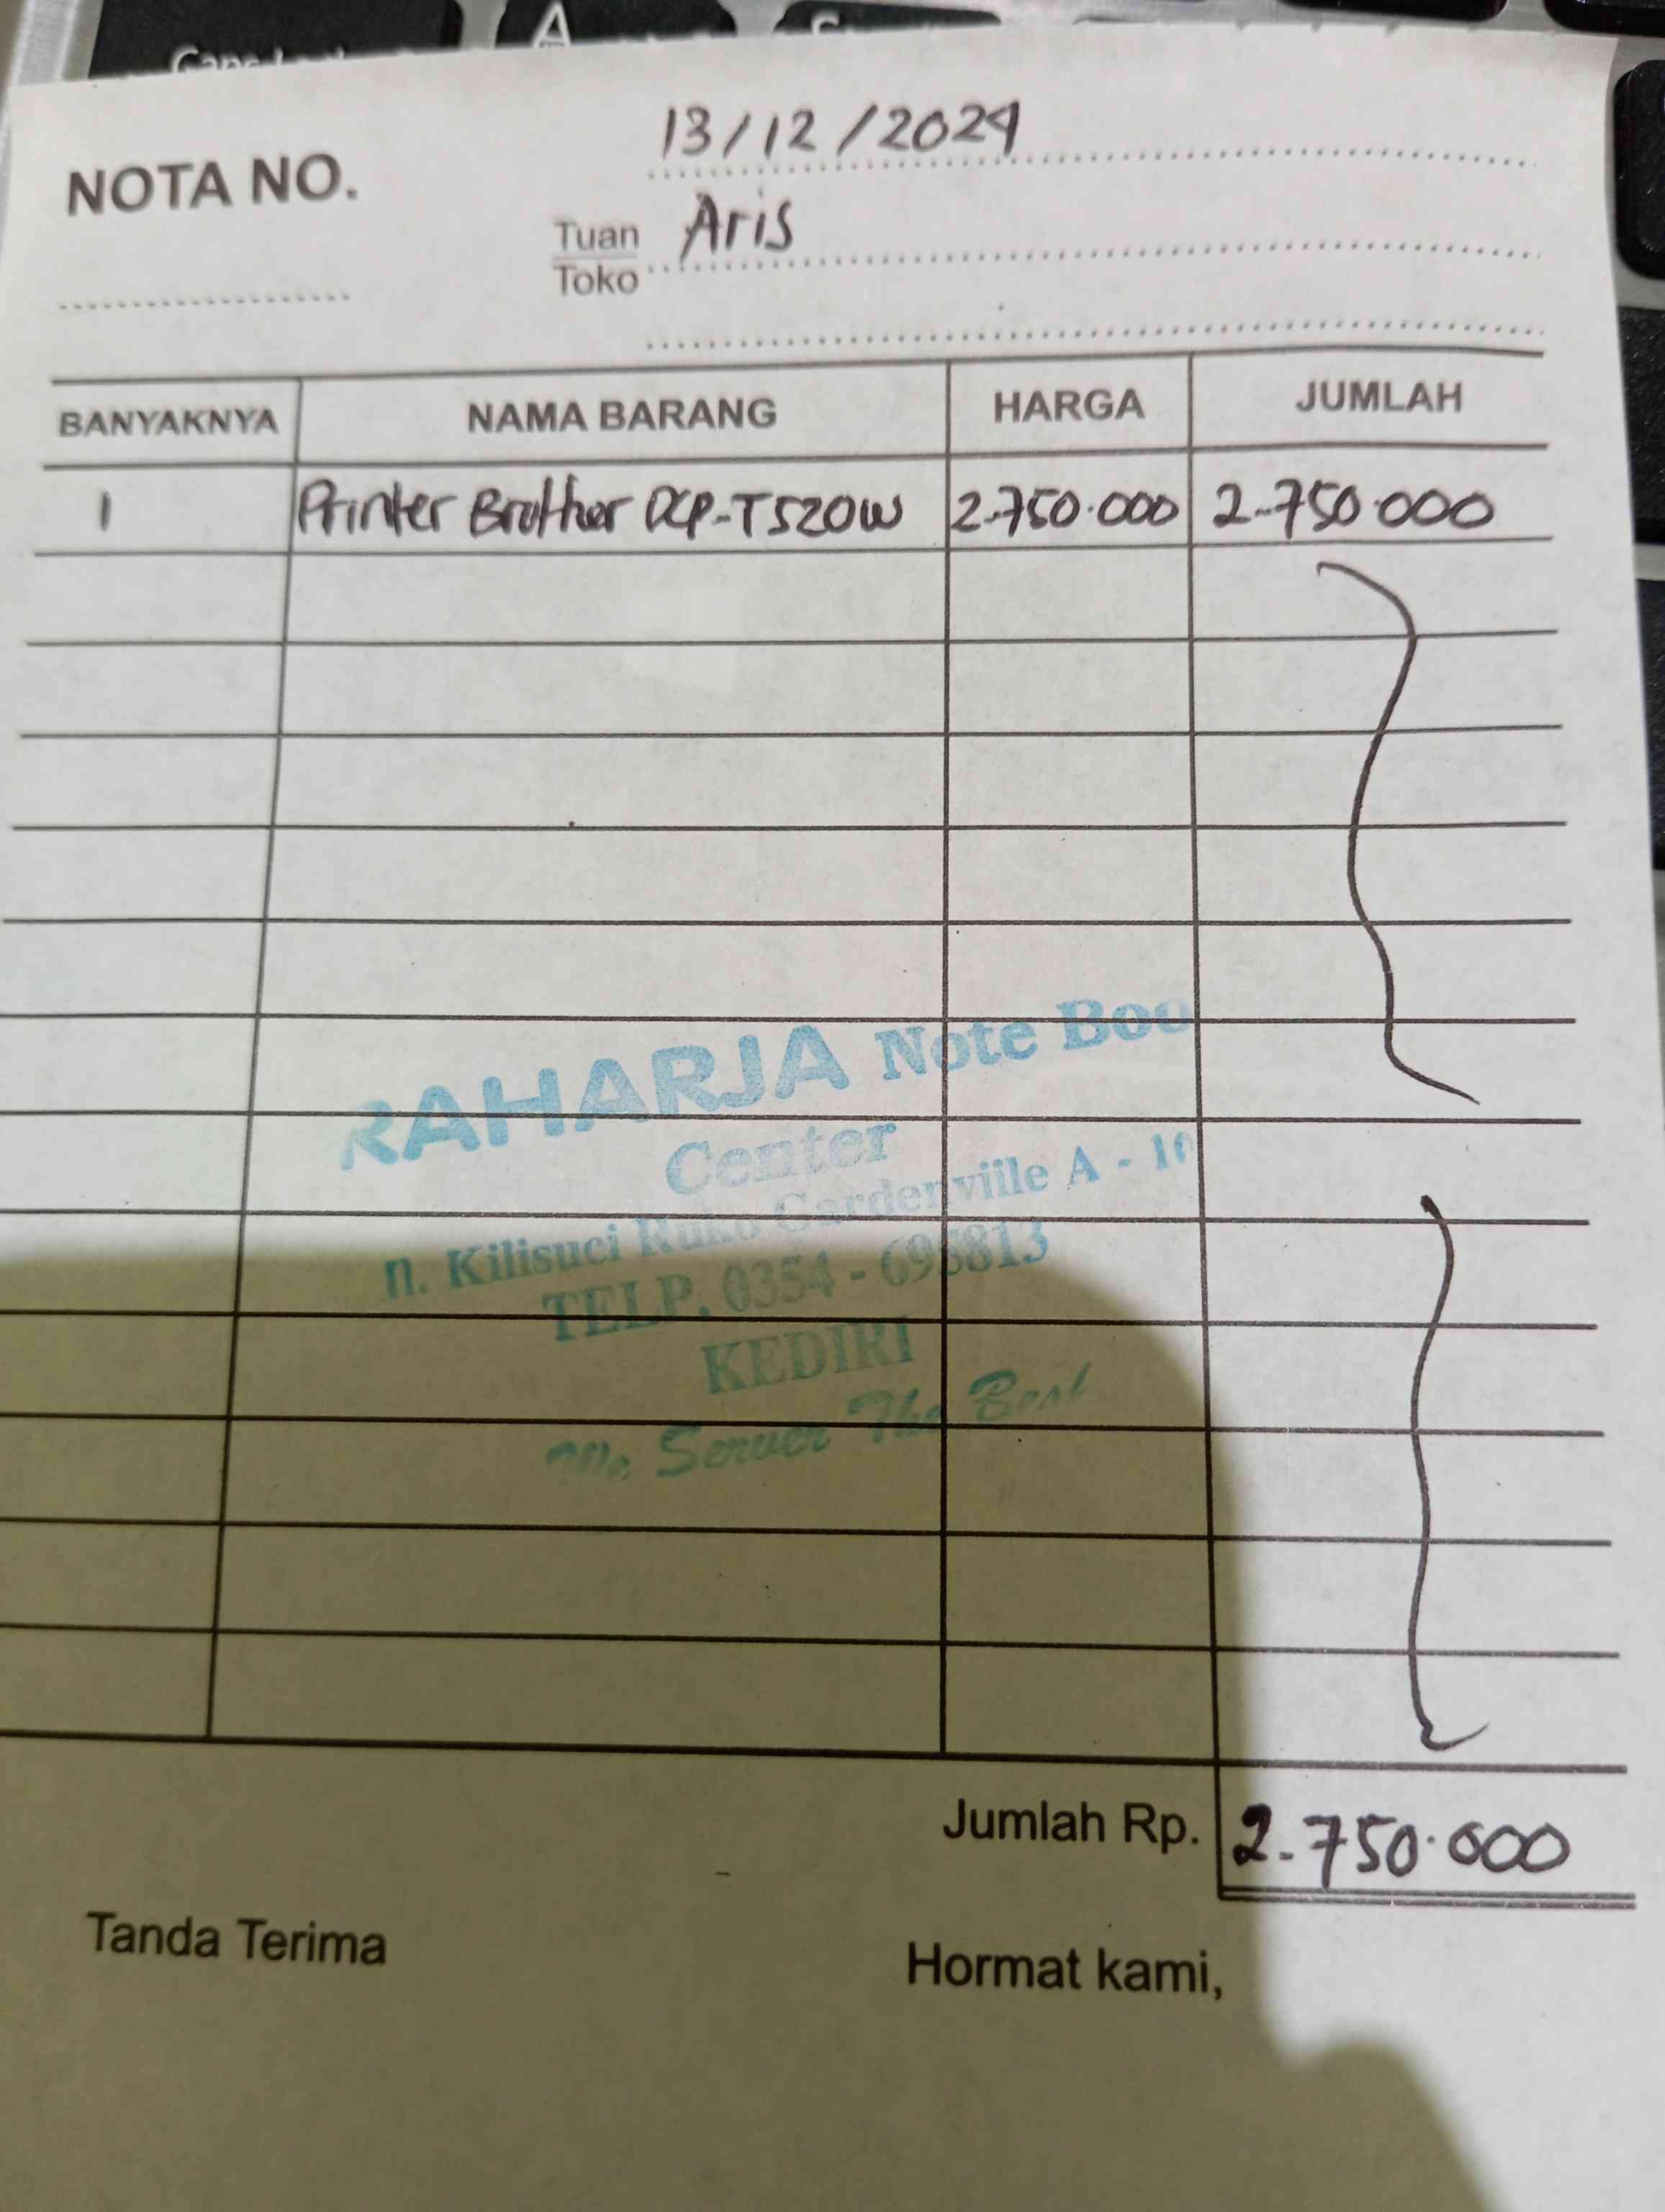 A
13/12/2024
NOTA NO.
Tuan Aris
Toko
BANYAKNYA NAMA BARANG HARGA JUMLAH
1 Printer Brother DCP-T520W 2.750.000 2.750.000
RAHARJA Note Boo
Center
Jl. Kilisuci Ruko Gardenviile A - 10
TELP. 0354 - 695813
KEDIRI
We Server The Best
Jumlah Rp. 2.750.000
Tanda Terima Hormat kami,